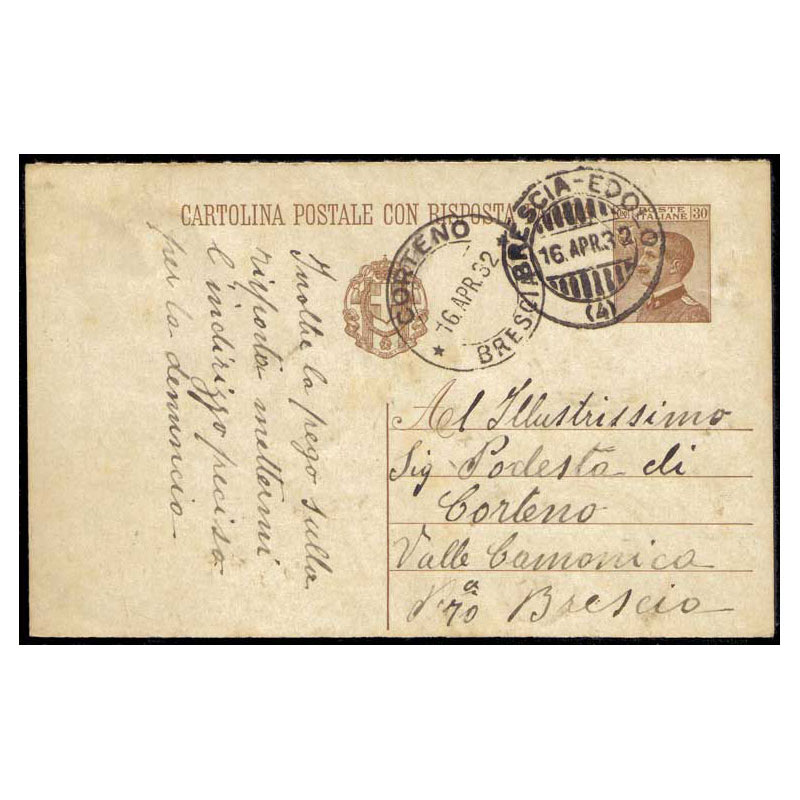 CARTOLINA POSTALE CON RISPOSTA
POSTE
ITALIANE 30
CORTENO
16.APR.32
BRESCIA
BRESCIA-EDOLO
16.APR.32
(4)
Al Illustrissimo
Sig Podestà di
Corteno
Valle Camonica
Brescia
Inoltre la prego sulla
risposta mettermi
l'indirizzo preciso
per la denuncia